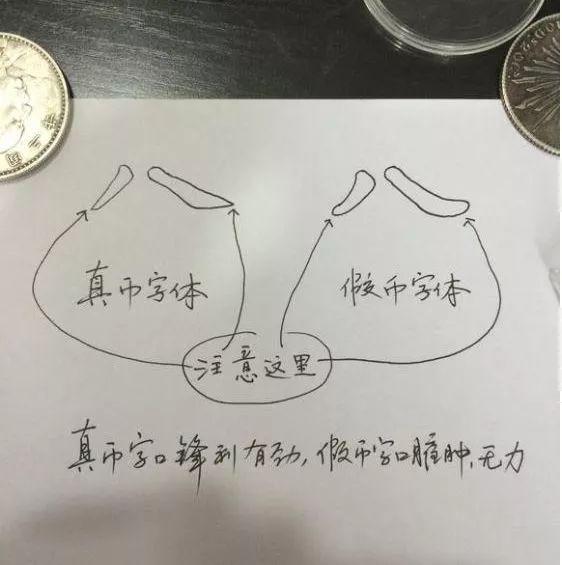 真币字体 假币字体
注意这里
真币字口锋利有劲,假币字口臃肿,无力